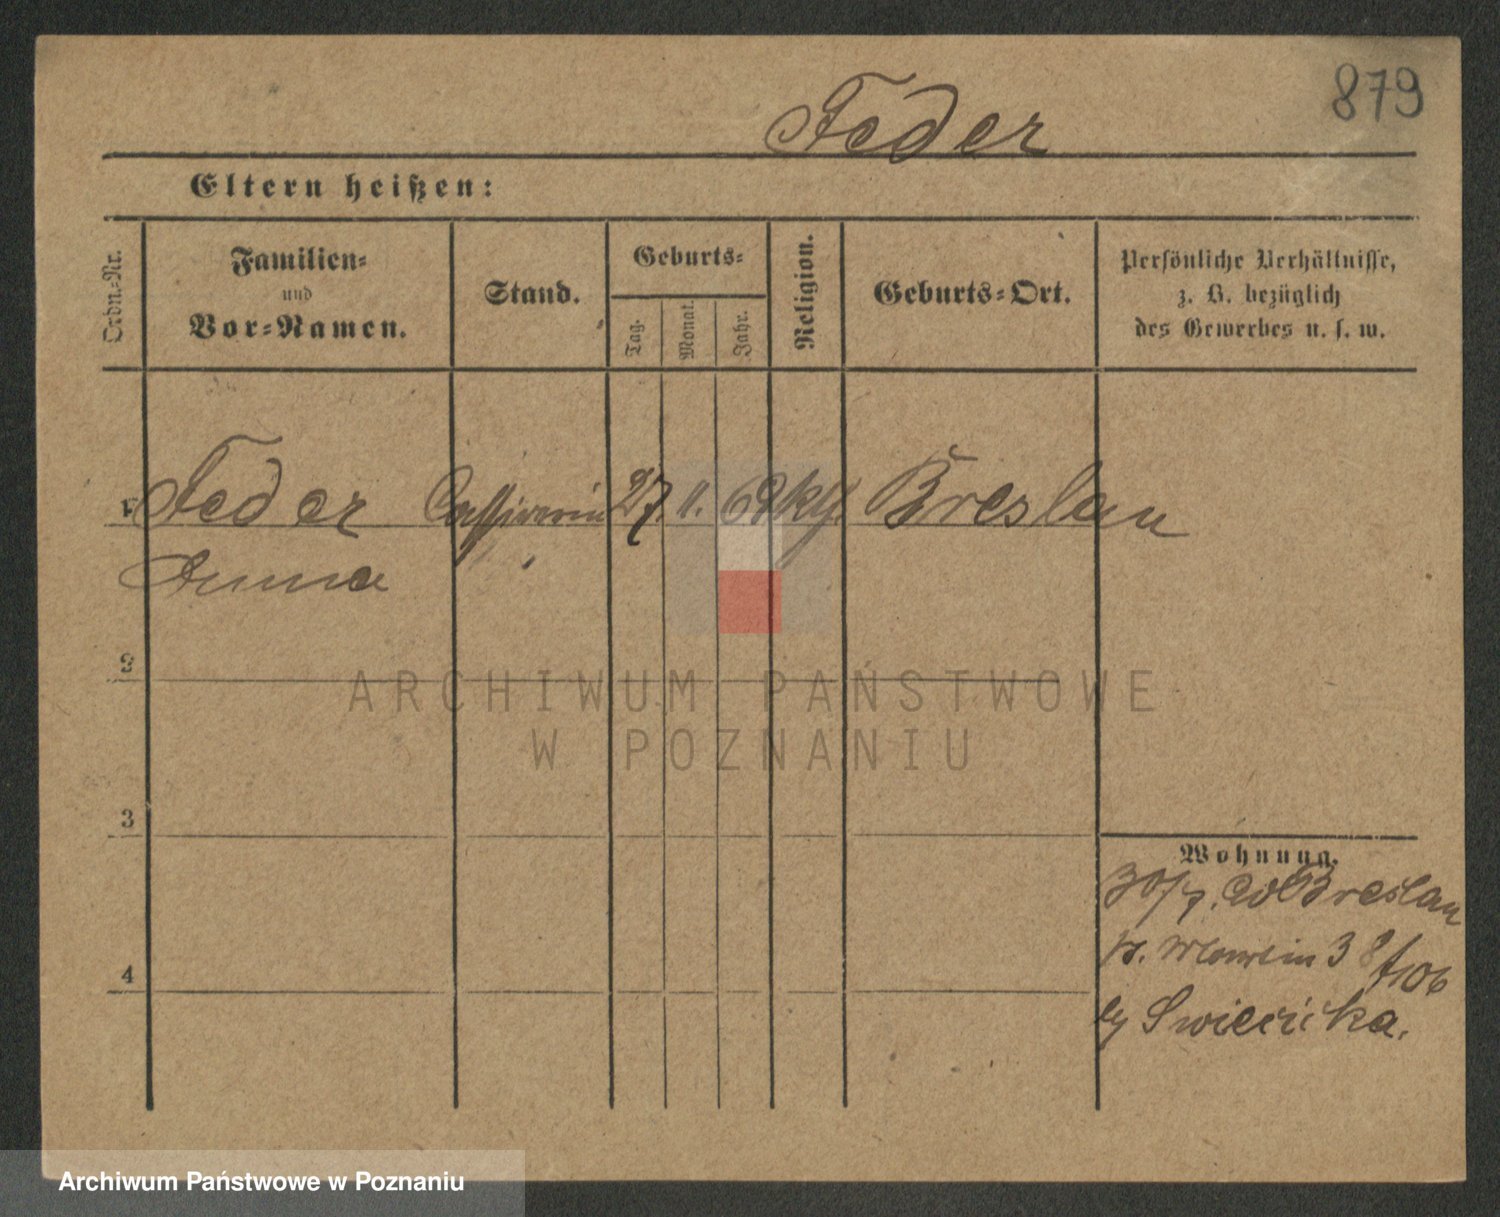 879
Feder
Eltern heißen:
Ordn.-Nr.
Familien-
und
Vor-Namen.
Stand.
Geburts-
Tag.
Monat.
Jahr.
Religion.
Geburts-Ort.
Persönliche Verhältnisse,
z. B. bezüglich
des Gewerbes u. s. w.
1 Feder Cassirerin 27. 11. 69 Breslau
Anna
2
3
4
Wohnung.
30/7. Breslau
3 8/106
Swiecicka.
ARCHIWUM PAŃSTWOWE
W POZNANIU
Archiwum Państwowe w Poznaniu